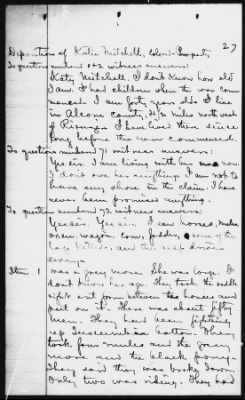 27
Deposition of Katie Mitchell, Colored Property
To questions numbered 1 & 2 witness answers:
Katy Mitchell, I don't know how old
I am. I had children when the war com
menced. I am forty years old I live
in Alcorn county, 2½ miles north west
of Rienzi. I have lived there since
long before the war commenced.
To questions numbered 71 witness answers:
Yes sir. I am living with him now
I don't owe him anything. I am not to
have any share in the claim. I have
never been promised anything.
To question numbered 72 witness answers:
Yes sir. Yes sir. I saw horses, mules
oxen wagon. Corn, fodder, some of the
hogs killed, and the
away.
Item 1
was a grey mare. She was large. I
don't know her age. They took the saddle
right out from between the houses and
put on it. There was about fifty
men. They had been fighting
up Tuscumbia bottom. They
took four mules and the grey
mare and the black pony.
They said they was broke down
Only two was riding. They had